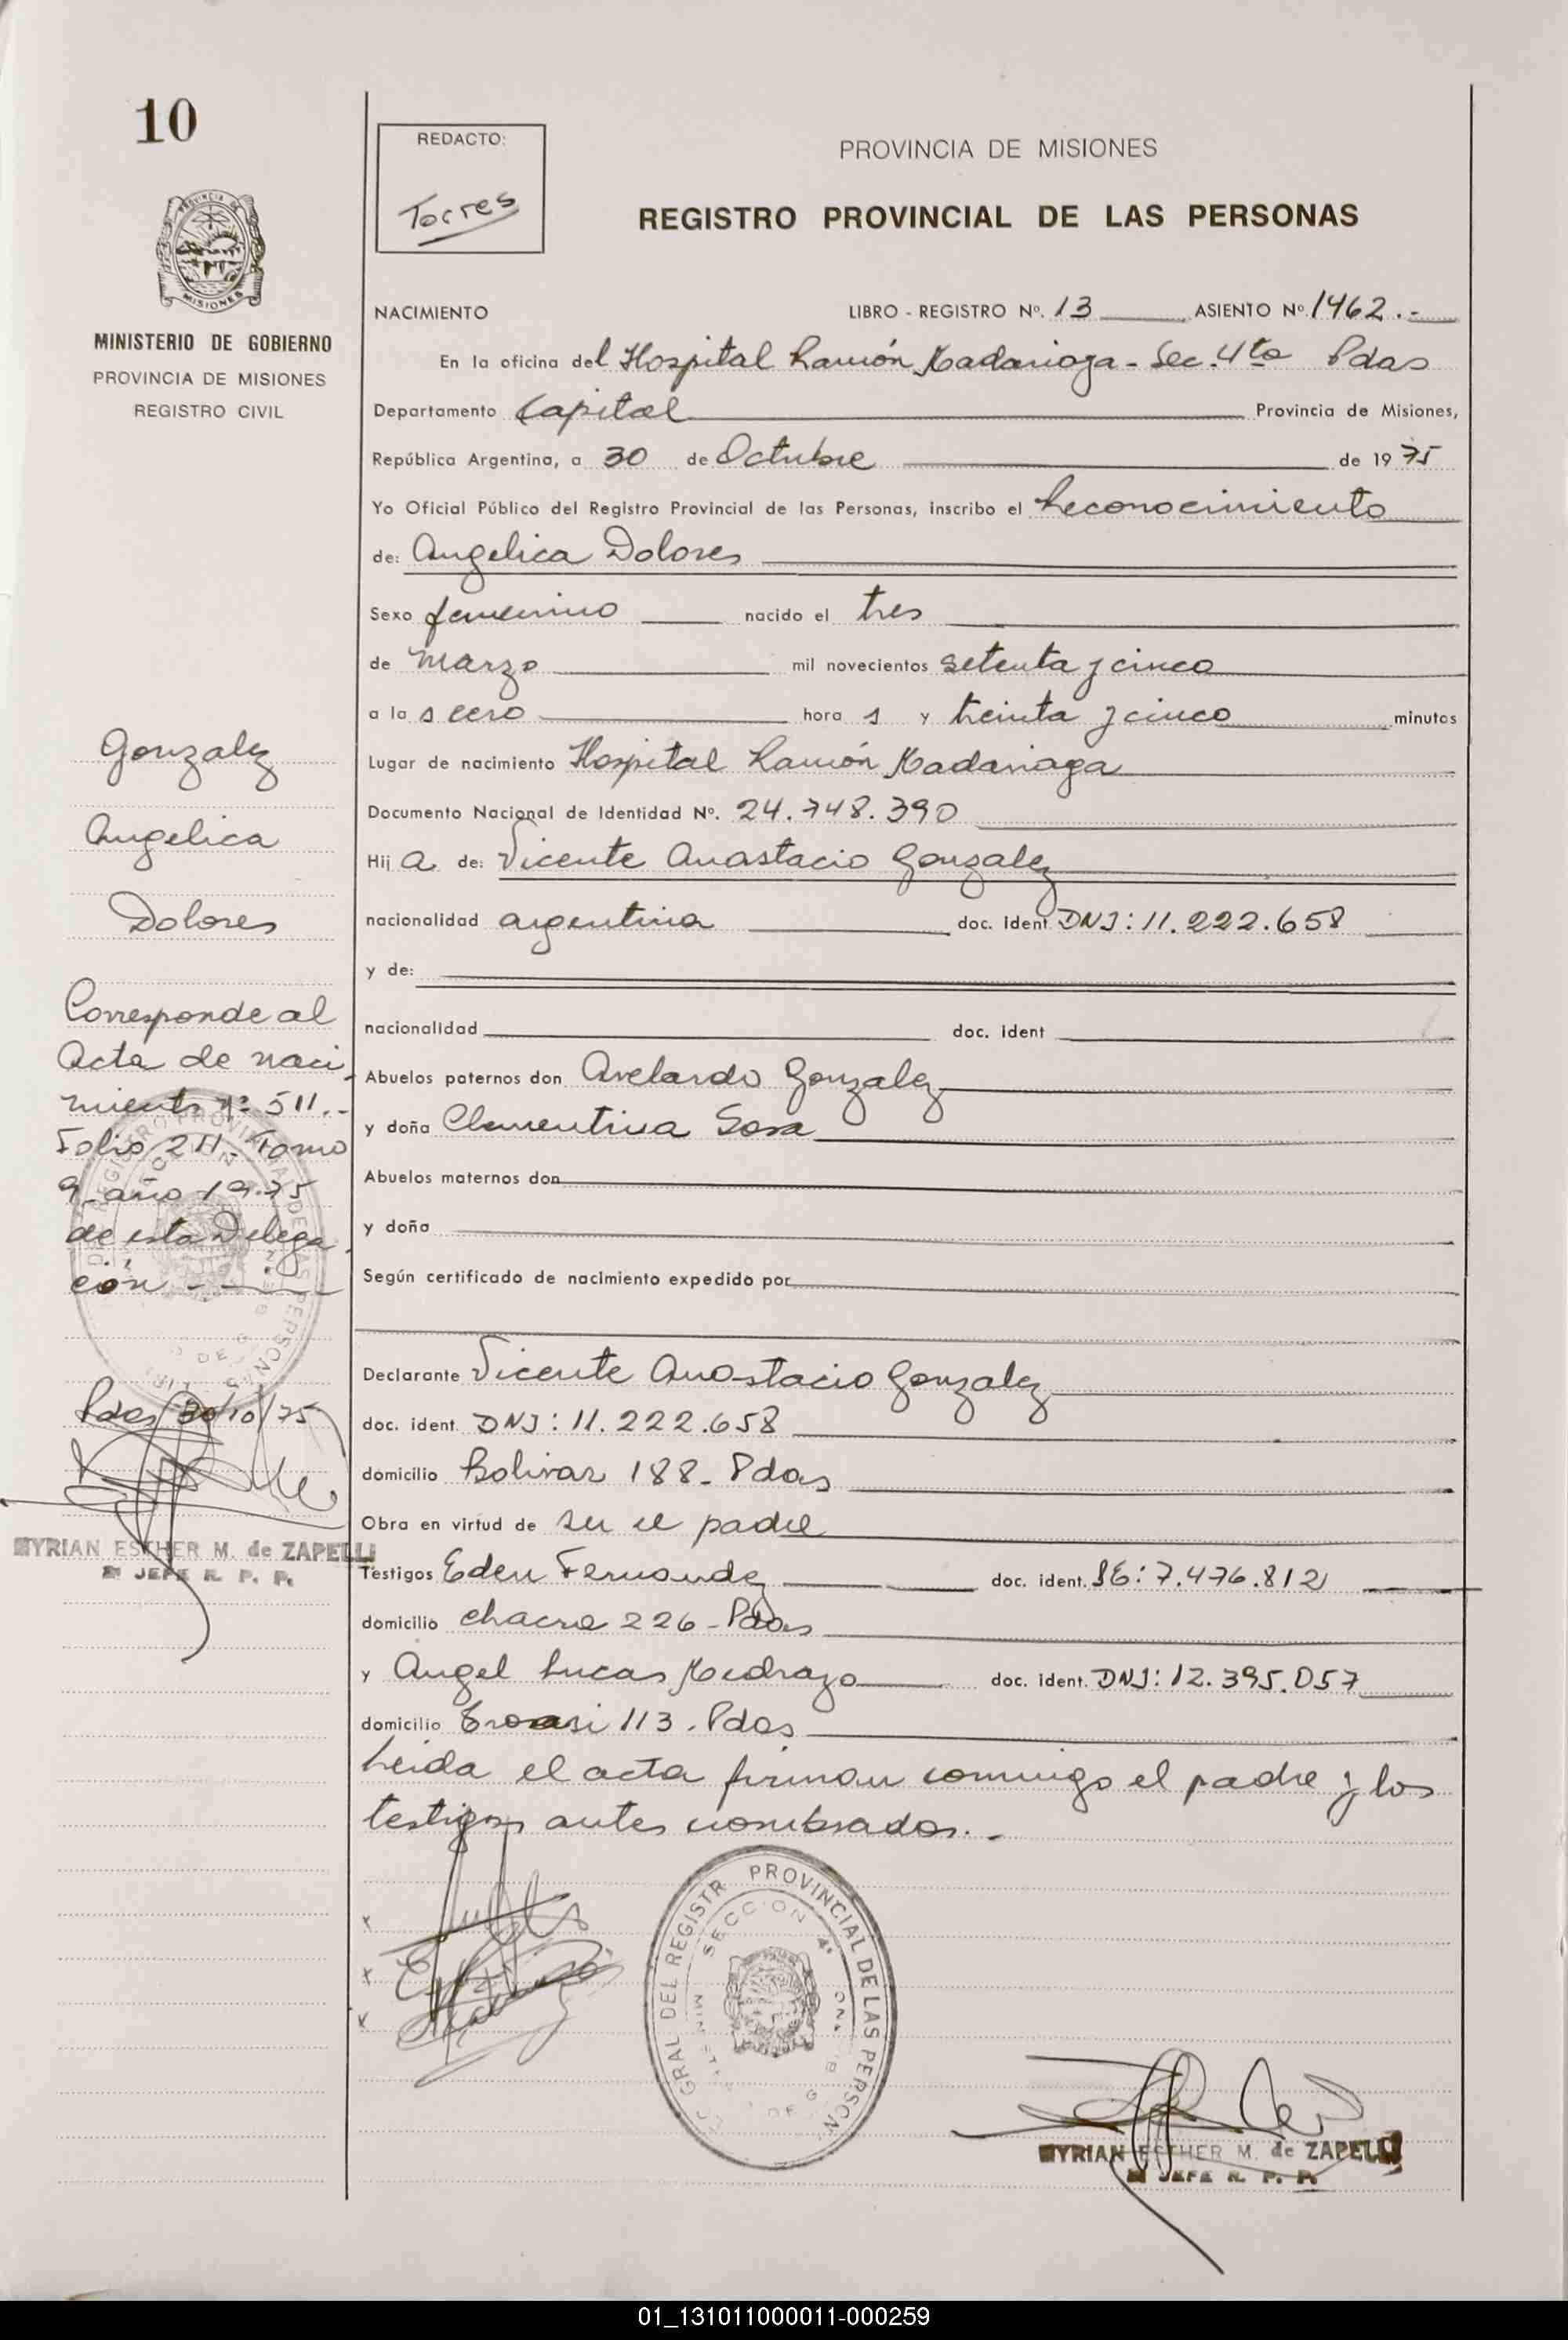 10
REDACTO:
Torres
PROVINCIA DE MISIONES
REGISTRO PROVINCIAL DE LAS PERSONAS
MISIONES
MINISTERIO DE GOBIERNO
PROVINCIA DE MISIONES
REGISTRO CIVIL
NACIMIENTO LIBRO - REGISTRO Nº. 13 ASIENTO Nº. 1462.-
En la oficina del Hospital Ramón Madariaga - Sec. 4ta Pdas
Departamento Capital Provincia de Misiones,
República Argentina, a 30 de Octubre de 1975
Yo Oficial Público del Registro Provincial de las Personas, inscribo el Reconocimiento
de: Angelica Dolores
Sexo femenino nacido el tres
de Marzo mil novecientos setenta y cinco
a la s cero hora s y treinta y cinco minutos
Lugar de nacimiento Hospital Ramón Madariaga
Documento Nacional de Identidad Nº. 24.748.390
Hij a de: Vicente Anastacio Gonzalez
nacionalidad argentina doc. ident DNI: 11.222.658
y de:
nacionalidad doc. ident
Abuelos paternos don Avelardo Gonzalez
y doña Clementina Sosa
Abuelos maternos don
y doña
Según certificado de nacimiento expedido por
Declarante Vicente Anastacio Gonzalez
doc. ident. DNI: 11.222.658
domicilio Bolivar 188 - Pdas
Obra en virtud de ser el padre
Testigos Eden Fernandez doc. ident. LE: 7.476.812
domicilio chacra 226 - Pdas
y Angel Lucas Medrazo doc. ident. DNI: 12.395.057
domicilio 113. Pdas
Leida el acta firman conmigo el padre y los
testigos antes nombrados.-
Gonzalez
Angelica
Dolores
Corresponde al
Acta de naci-
miento nº 511.-
Folio 211- Tomo
9- año 1975
de esta Delega-
ción - -
Pdas 30/10/75
MYRIAN ESTHER M. de ZAPELLI
JEFE R. P. P.
GRAL DEL REGISTR PROVINCIAL DE LAS PERSON
SECCION 4ª
MYRIAN ESTHER M. de ZAPELLI
JEFE R. P. P.
01_131011000011-000259